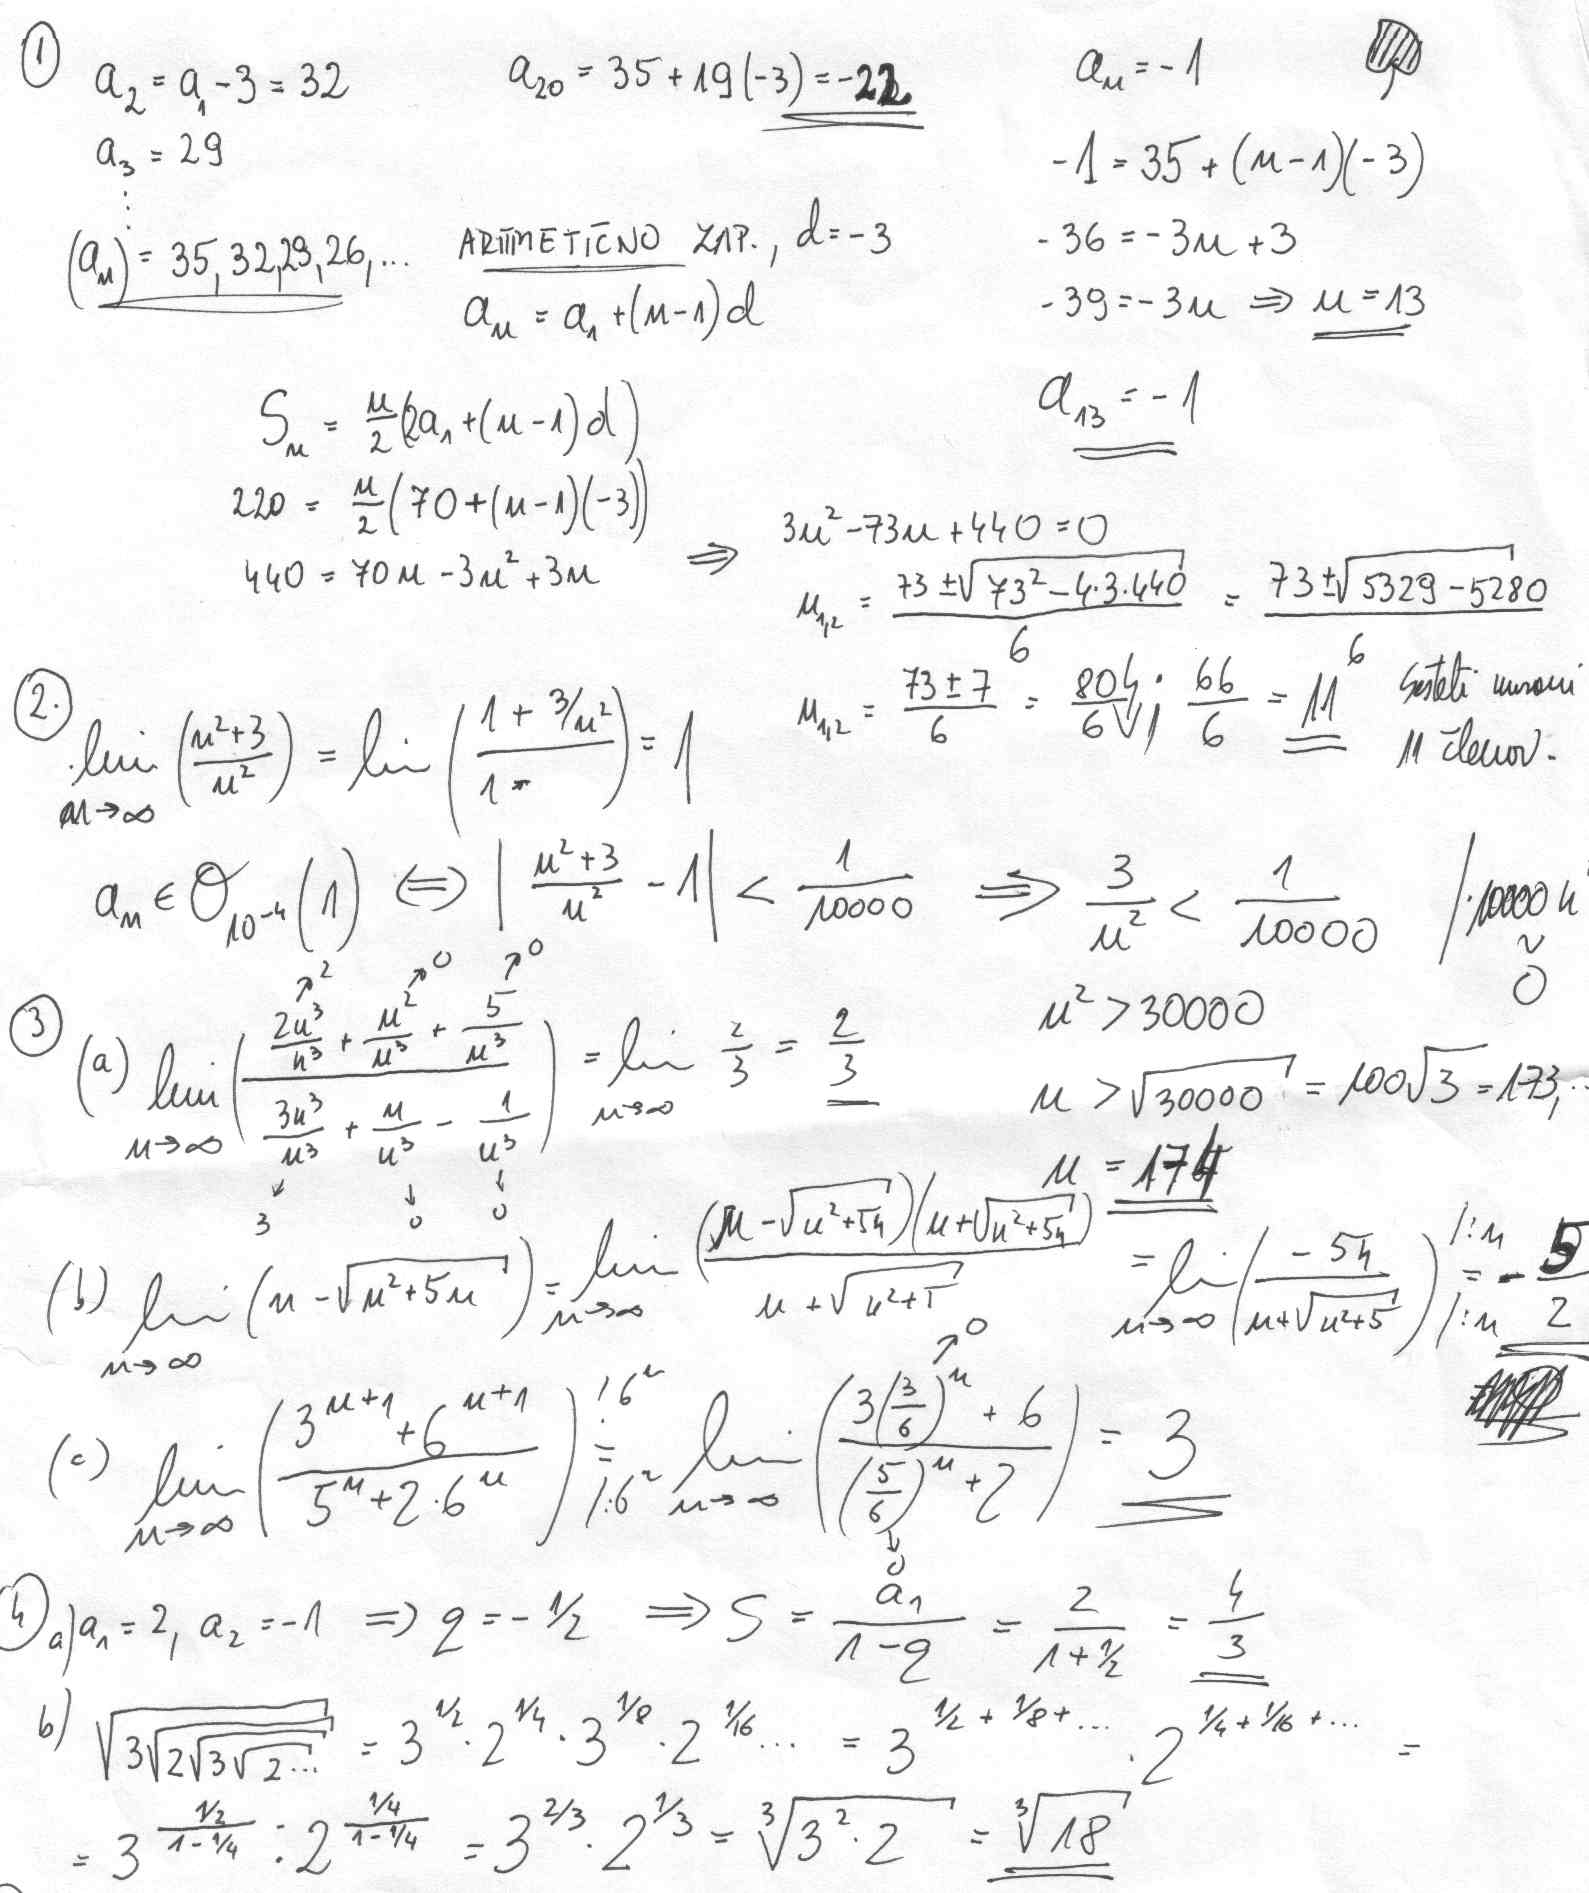 1
a₂ = a₁ - 3 = 32
a₃ = 29
⋮
(aₙ) = 35, 32, 29, 26, ...
a₂₀ = 35 + 19(-3) = -22
ARITMETIČNO ZAP., d = -3
aₙ = a₁ + (n-1)d
aₙ = -1
-1 = 35 + (n-1)(-3)
-36 = -3n + 3
-39 = -3n ⇒ n = 13
a₁₃ = -1
Sₙ = n/2 (2a₁ + (n-1)d)
220 = n/2 (70 + (n-1)(-3))
440 = 70n - 3n² + 3n ⇒
3n² - 73n + 440 = 0
n₁,₂ = (73 ± √(73² - 4·3·440))/6 = (73 ± √(5329 - 5280))/6
n₁,₂ = (73 ± 7)/6 = 80/6 ; 66/6 = 11 Sešteti moramo
11 členov.
2.
lim n→∞ ((n²+3)/n²) = lim ((1 + 3/n²)/1) = 1
aₙ ∈ O₁₀₋₄(1) ⇔ |(n²+3)/n² - 1| < 1/10000 ⇒ 3/n² < 1/10000 /·10000n²
0
n² > 30000
n > √30000 = 100√3 = 173,...
n = 174
3
(a) lim n→∞ ((2n³/n³ + n²/n³ + 5/n³)/(3n³/n³ + n/n³ - 1/n³)) = lim n→∞ 2/3 = 2/3
↗2 ↗0 ↗0
↓3 ↓0 ↓0
(b) lim n→∞ (n - √(n²+5n)) = lim n→∞ ((n - √(n²+5n))(n + √(n²+5n)))/(n + √(n²+5)) = lim n→∞ (-5n/(n+√(n²+5))) /:n /:n = -5/2
(c) lim n→∞ ((3ⁿ⁺¹ + 6ⁿ⁺¹)/(5ⁿ + 2·6ⁿ)) /:6ⁿ /:6ⁿ = lim n→∞ ((3(3/6)ⁿ + 6)/((5/6)ⁿ + 2)) = 3
↗0
↓0
4
a) a₁ = 2, a₂ = -1 ⇒ q = -1/2 ⇒ S = a₁/(1-q) = 2/(1+1/2) = 4/3
b) √(3√(2√(3√(2...)))) = 3^(1/2) · 2^(1/4) · 3^(1/8) · 2^(1/16) ... = 3^(1/2 + 1/8 + ...) · 2^(1/4 + 1/16 + ...) =
= 3^((1/2)/(1-1/4)) · 2^((1/4)/(1-1/4)) = 3^(2/3) · 2^(1/3) = ∛(3²·2) = ∛18